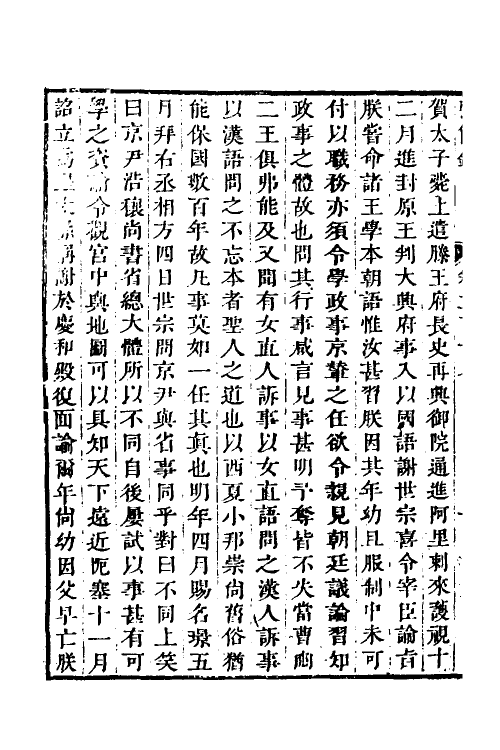 賀太子薨上遣滕王府長史再興御院通進阿里剌來護視十
二月進封原王判大興府事入以國語謝世宗喜令宰臣諭
朕嘗命諸王學本朝語惟汝甚習朕因其年幼且服制中未可
付以職務亦須令學政事京輦之任欲令親見朝廷議論習知
政事之體故也問其行事咸言見事甚明予奪皆不失當曹豳
二王俱弗能及又聞有女直人訴事以女直語問之漢人訴事
以漢語問之不忘本者聖人之道也以西夏小邦崇尚舊俗猶
能保國數百年故凡事莫如一任其真也明年四月賜名璟五
月拜右丞相方四日世宗問京尹與省事同乎對曰不同上笑
曰京尹浩穰尚書省總大體所以不同自後屢試以事甚有可
學之資諭令觀宮中輿地圖可以具知天下遠近阨塞十一月
詔立爲皇太孫稱謝於慶和殿復面諭爾年尚幼因父早亡朕